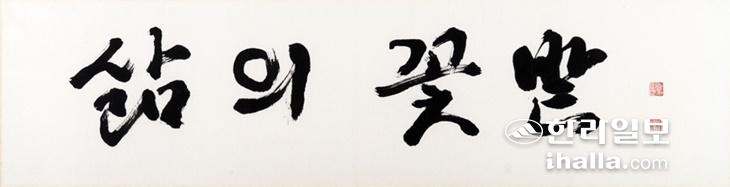 삶의 꽃밭
한라일보
ihalla.com